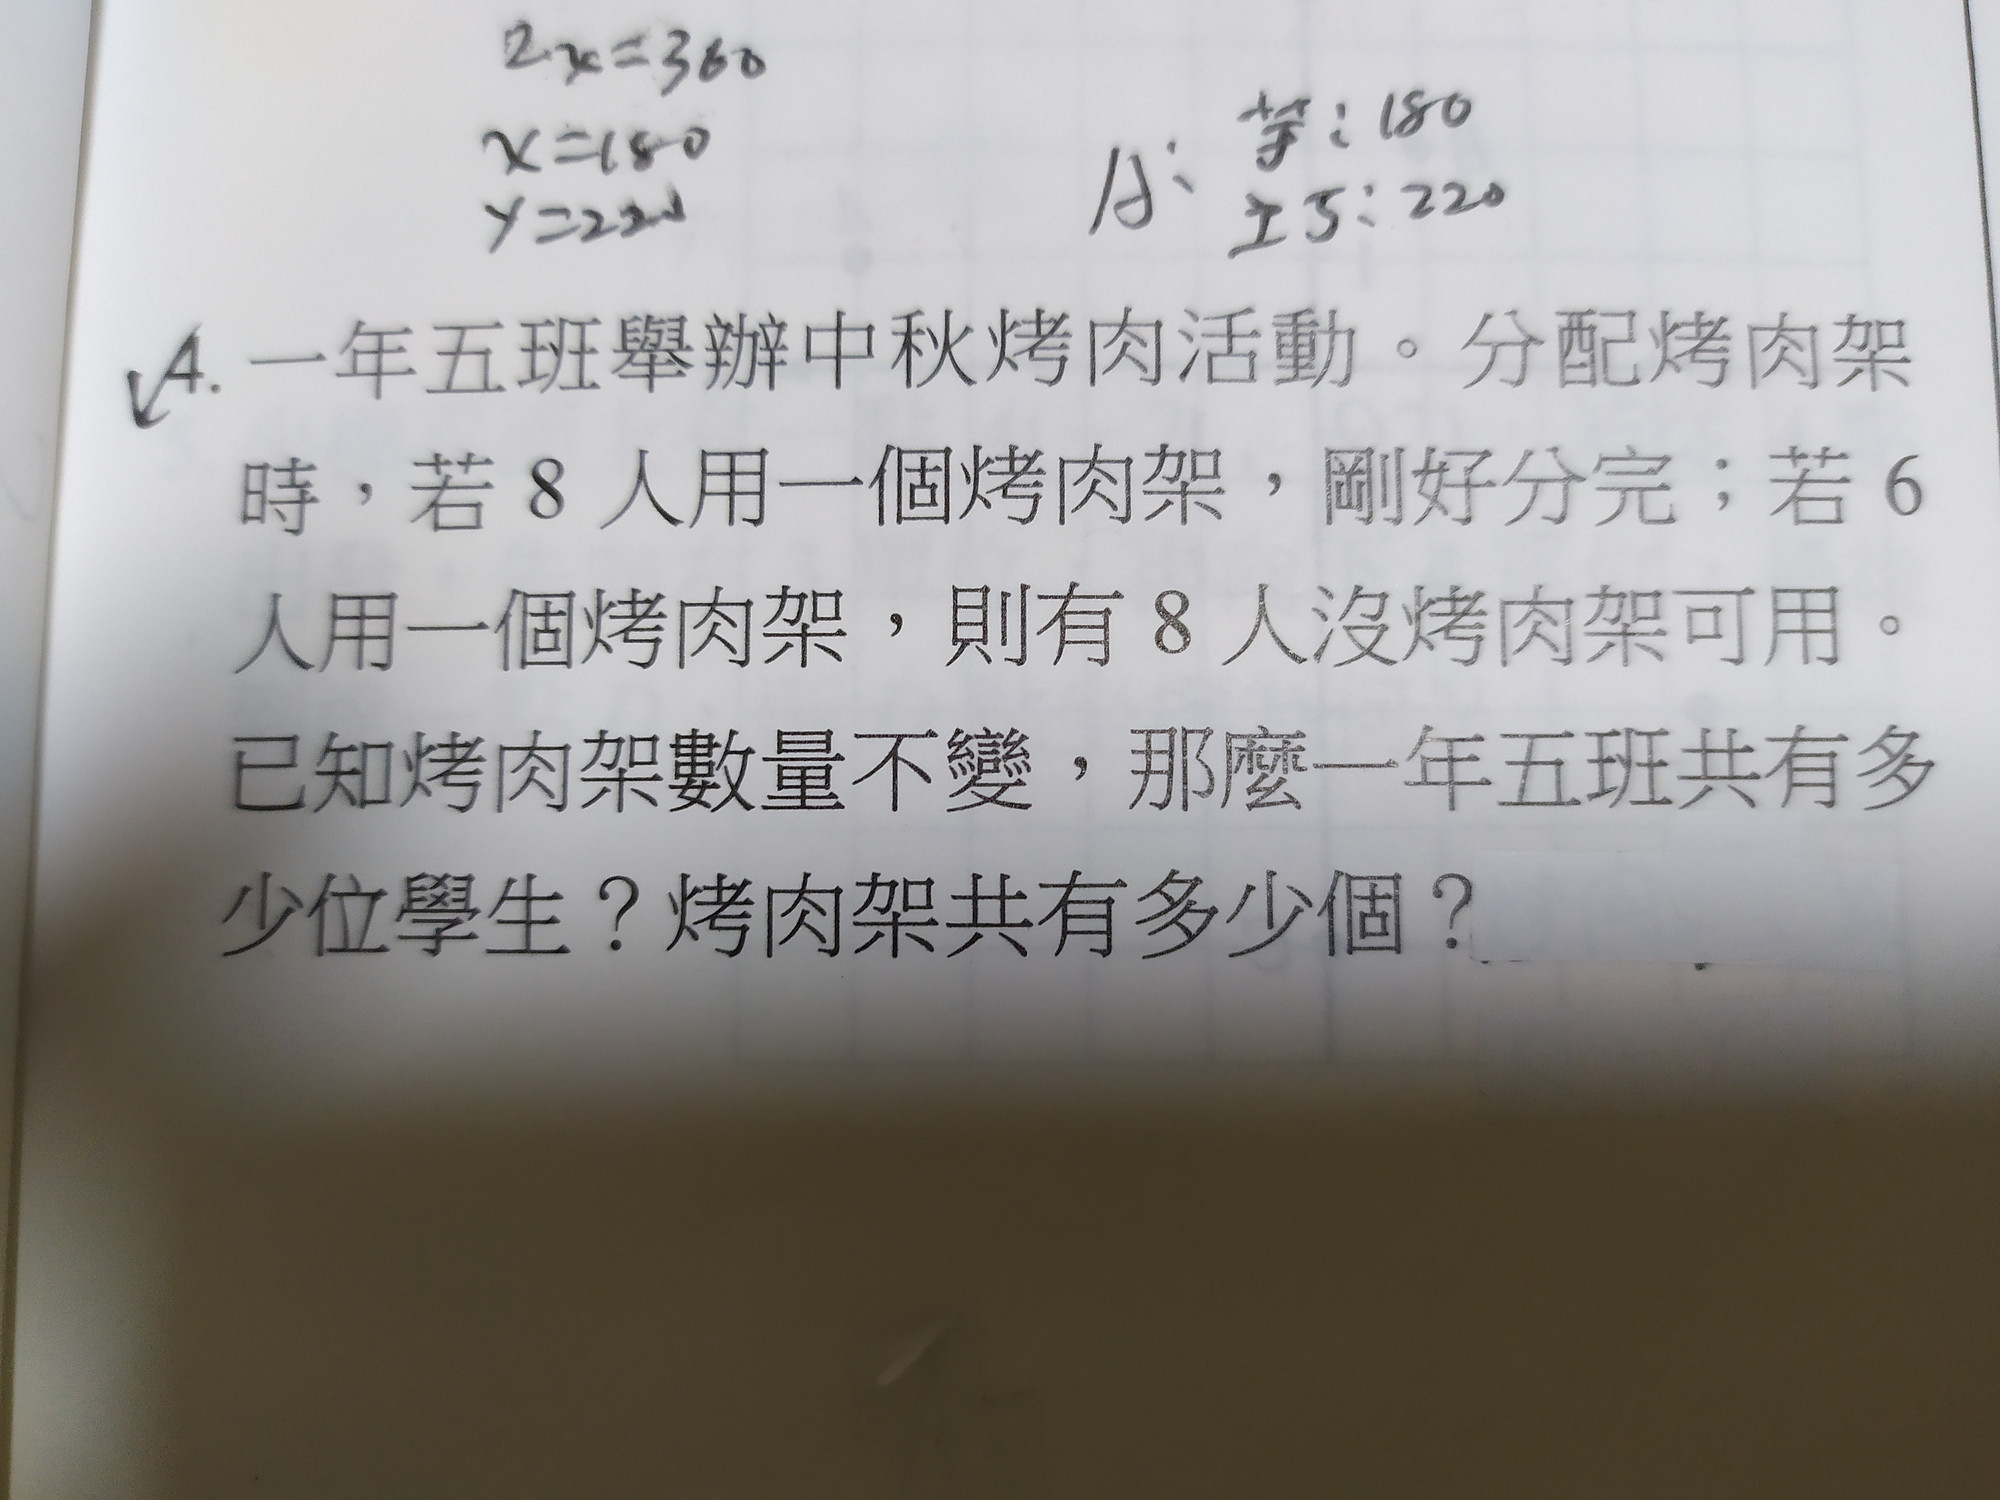 2x=360
x=180
y=220
A: 芋:180
工巧:220
4. 一年五班舉辦中秋烤肉活動。分配烤肉架
時，若 8 人用一個烤肉架，剛好分完；若 6
人用一個烤肉架，則有 8 人沒烤肉架可用。
已知烤肉架數量不變，那麼一年五班共有多
少位學生？烤肉架共有多少個？